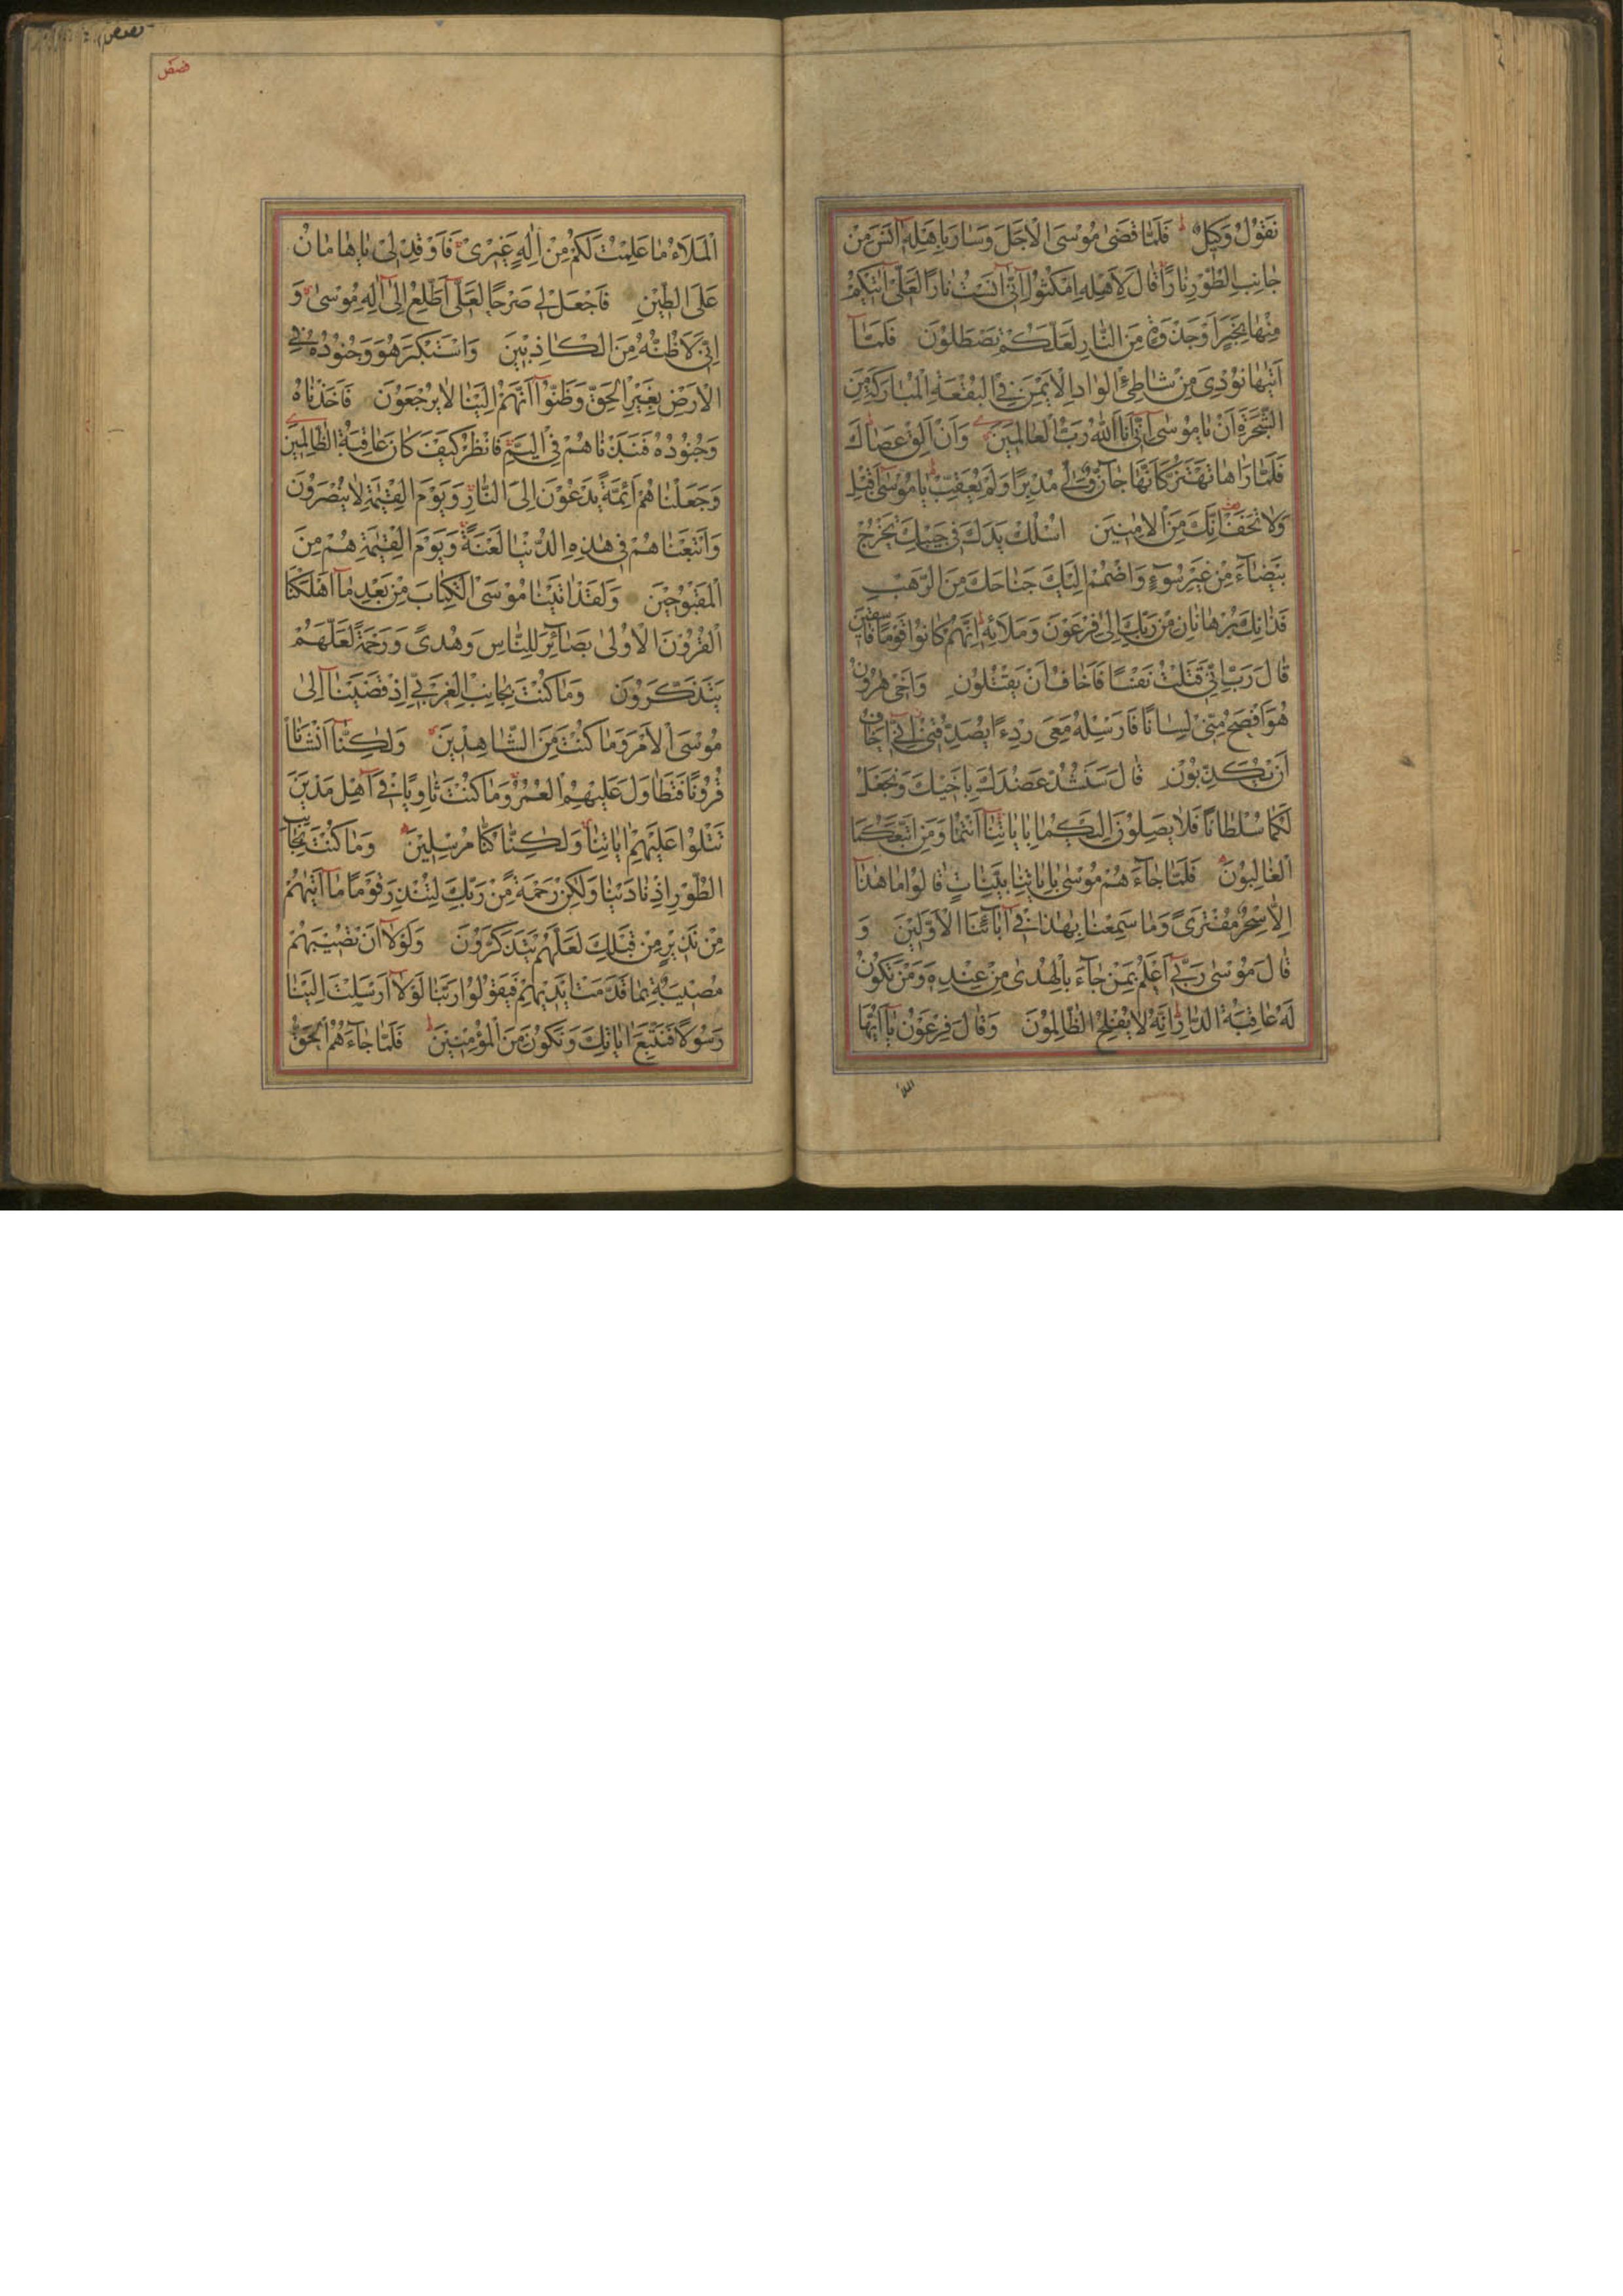 نَقُولُ وَكِيلٌ فَلَمَّا قَضٰى مُوسَى الْاَجَلَ وَسَارَ بِاَهْلِهٓ اٰنَسَ مِنْ
جَانِبِ الطُّورِ نَارًا قَالَ لِاَهْلِهِ امْكُثُوٓا اِنّٓى اٰنَسْتُ نَارًا لَعَلّٓى اٰتٖيكُمْ
مِنْهَا بِخَبَرٍ اَوْ جَذْوَةٍ مِنَ النَّارِ لَعَلَّكُمْ تَصْطَلُونَ فَلَمَّآ
اَتٰيهَا نُودِىَ مِنْ شَاطِئِ الْوَادِ الْاَيْمَنِ فِى الْبُقْعَةِ الْمُبَارَكَةِ مِنَ
الشَّجَرَةِ اَنْ يَا مُوسٰىٓ اِنّٓى اَنَا اللّٰهُ رَبُّ الْعَالَمٖينَ وَاَنْ اَلْقِ عَصَاكَ
فَلَمَّا رَاٰهَا تَهْتَزُّ كَاَنَّهَا جَآنٌّ وَلّٰى مُدْبِرًا وَلَمْ يُعَقِّبْ يَا مُوسٰىٓ اَقْبِلْ
وَلَا تَخَفْ اِنَّكَ مِنَ الْاٰمِنٖينَ اُسْلُكْ يَدَكَ فٖى جَيْبِكَ تَخْرُجْ
بَيْضَآءَ مِنْ غَيْرِ سُوٓءٍ وَاضْمُمْ اِلَيْكَ جَنَاحَكَ مِنَ الرَّهْبِ
فَذَانِكَ بُرْهَانَانِ مِنْ رَبِّكَ اِلٰى فِرْعَوْنَ وَمَلَائِهٖ اِنَّهُمْ كَانُوا قَوْمًا فَاسِقٖينَ
قَالَ رَبِّ اِنّٖى قَتَلْتُ مِنْهُمْ نَفْسًا فَاَخَافُ اَنْ يَقْتُلُونِ وَاَخٖى هٰرُونُ
هُوَ اَفْصَحُ مِنّٖى لِسَانًا فَاَرْسِلْهُ مَعِىَ رِدْءًا يُصَدِّقُنٖى اِنّٓى اَخَافُ
اَنْ يُكَذِّبُونِ قَالَ سَنَشُدُّ عَضُدَكَ بِاَخٖيكَ وَنَجْعَلُ
لَكُمَا سُلْطَانًا فَلَا يَصِلُونَ اِلَيْكُمَا بِاٰيَاتِنَآ اَنْتُمَا وَمَنِ اتَّبَعَكُمَا
الْغَالِبُونَ فَلَمَّا جَآءَهُمْ مُوسٰى بِاٰيَاتِنَا بَيِّنَاتٍ قَالُوا مَا هٰذَآ
اِلَّا سِحْرٌ مُفْتَرًى وَمَا سَمِعْنَا بِهٰذَا فٖىٓ اٰبَآئِنَا الْاَوَّلٖينَ وَ
قَالَ مُوسٰى رَبّٓى اَعْلَمُ بِمَنْ جَآءَ بِالْهُدٰى مِنْ عِنْدِهٖ وَمَنْ تَكُونُ
لَهُ عَاقِبَةُ الدَّارِ اِنَّهُ لَا يُفْلِحُ الظَّالِمُونَ وَقَالَ فِرْعَوْنُ يَآ اَيُّهَا
الملأ
قصص
اَلْمَلَاُ مَا عَلِمْتُ لَكُمْ مِنْ اِلٰهٍ غَيْرٖى فَاَوْقِدْ لٖى يَا هَامَانُ
عَلَى الطّٖينِ فَاجْعَلْ لٖى صَرْحًا لَعَلّٓى اَطَّلِعُ اِلٰٓى اِلٰهِ مُوسٰى وَ
اِنّٖى لَاَظُنُّهُ مِنَ الْكَاذِبٖينَ وَاسْتَكْبَرَ هُوَ وَجُنُودُهُ فِى
الْاَرْضِ بِغَيْرِ الْحَقِّ وَظَنُّوٓا اَنَّهُمْ اِلَيْنَا لَا يُرْجَعُونَ فَاَخَذْنَاهُ
وَجُنُودَهُ فَنَبَذْنَاهُمْ فِى الْيَمِّ فَانْظُرْ كَيْفَ كَانَ عَاقِبَةُ الظَّالِمٖينَ
وَجَعَلْنَاهُمْ اَئِمَّةً يَدْعُونَ اِلَى النَّارِ وَيَوْمَ الْقِيٰمَةِ لَا يُنْصَرُونَ
وَاَتْبَعْنَاهُمْ فٖى هٰذِهِ الدُّنْيَا لَعْنَةً وَيَوْمَ الْقِيٰمَةِ هُمْ مِنَ
الْمَقْبُوحٖينَ وَلَقَدْ اٰتَيْنَا مُوسَى الْكِتَابَ مِنْ بَعْدِ مَآ اَهْلَكْنَا
الْقُرُونَ الْاُولٰى بَصَآئِرَ لِلنَّاسِ وَهُدًى وَرَحْمَةً لَعَلَّهُمْ
يَتَذَكَّرُونَ وَمَا كُنْتَ بِجَانِبِ الْغَرْبِىِّ اِذْ قَضَيْنَآ اِلٰى
مُوسَى الْاَمْرَ وَمَا كُنْتَ مِنَ الشَّاهِدٖينَ وَلٰكِنَّآ اَنْشَاْنَا
قُرُونًا فَتَطَاوَلَ عَلَيْهِمُ الْعُمُرُ وَمَا كُنْتَ ثَاوِيًا فٖىٓ اَهْلِ مَدْيَنَ
تَتْلُوا عَلَيْهِمْ اٰيَاتِنَا وَلٰكِنَّا كُنَّا مُرْسِلٖينَ وَمَا كُنْتَ بِجَانِبِ
الطُّورِ اِذْ نَادَيْنَا وَلٰكِنْ رَحْمَةً مِنْ رَبِّكَ لِتُنْذِرَ قَوْمًا مَآ اَتٰيهُمْ
مِنْ نَذٖيرٍ مِنْ قَبْلِكَ لَعَلَّهُمْ يَتَذَكَّرُونَ وَلَوْلَآ اَنْ تُصٖيبَهُمْ
مُصٖيبَةٌ بِمَا قَدَّمَتْ اَيْدٖيهِمْ فَيَقُولُوا رَبَّنَا لَوْلَآ اَرْسَلْتَ اِلَيْنَا
رَسُولًا فَنَتَّبِعَ اٰيَاتِكَ وَنَكُونَ مِنَ الْمُؤْمِنٖينَ فَلَمَّا جَآءَهُمُ الْحَقُّ